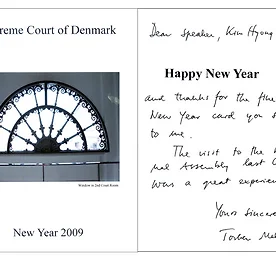 reme Court of Denmark
Window in 2nd Court Room
New Year 2009
Dear Speaker, Kim Hyong
Happy New Year
and thanks for the fine
New Year card you s
to me.
The visit to the
nal Assembly last
was a great experien
Yours sincere
Torben Mel